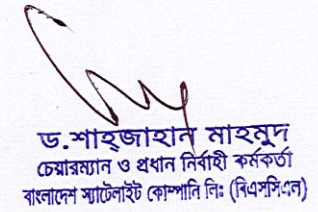 ড.শাহজাহান মাহমুদ
চেয়ারম্যান ও প্রধান নির্বাহী কর্মকর্তা
বাংলাদেশ স্যাটেলাইট কোম্পানি লিঃ (বিএসসিএল)